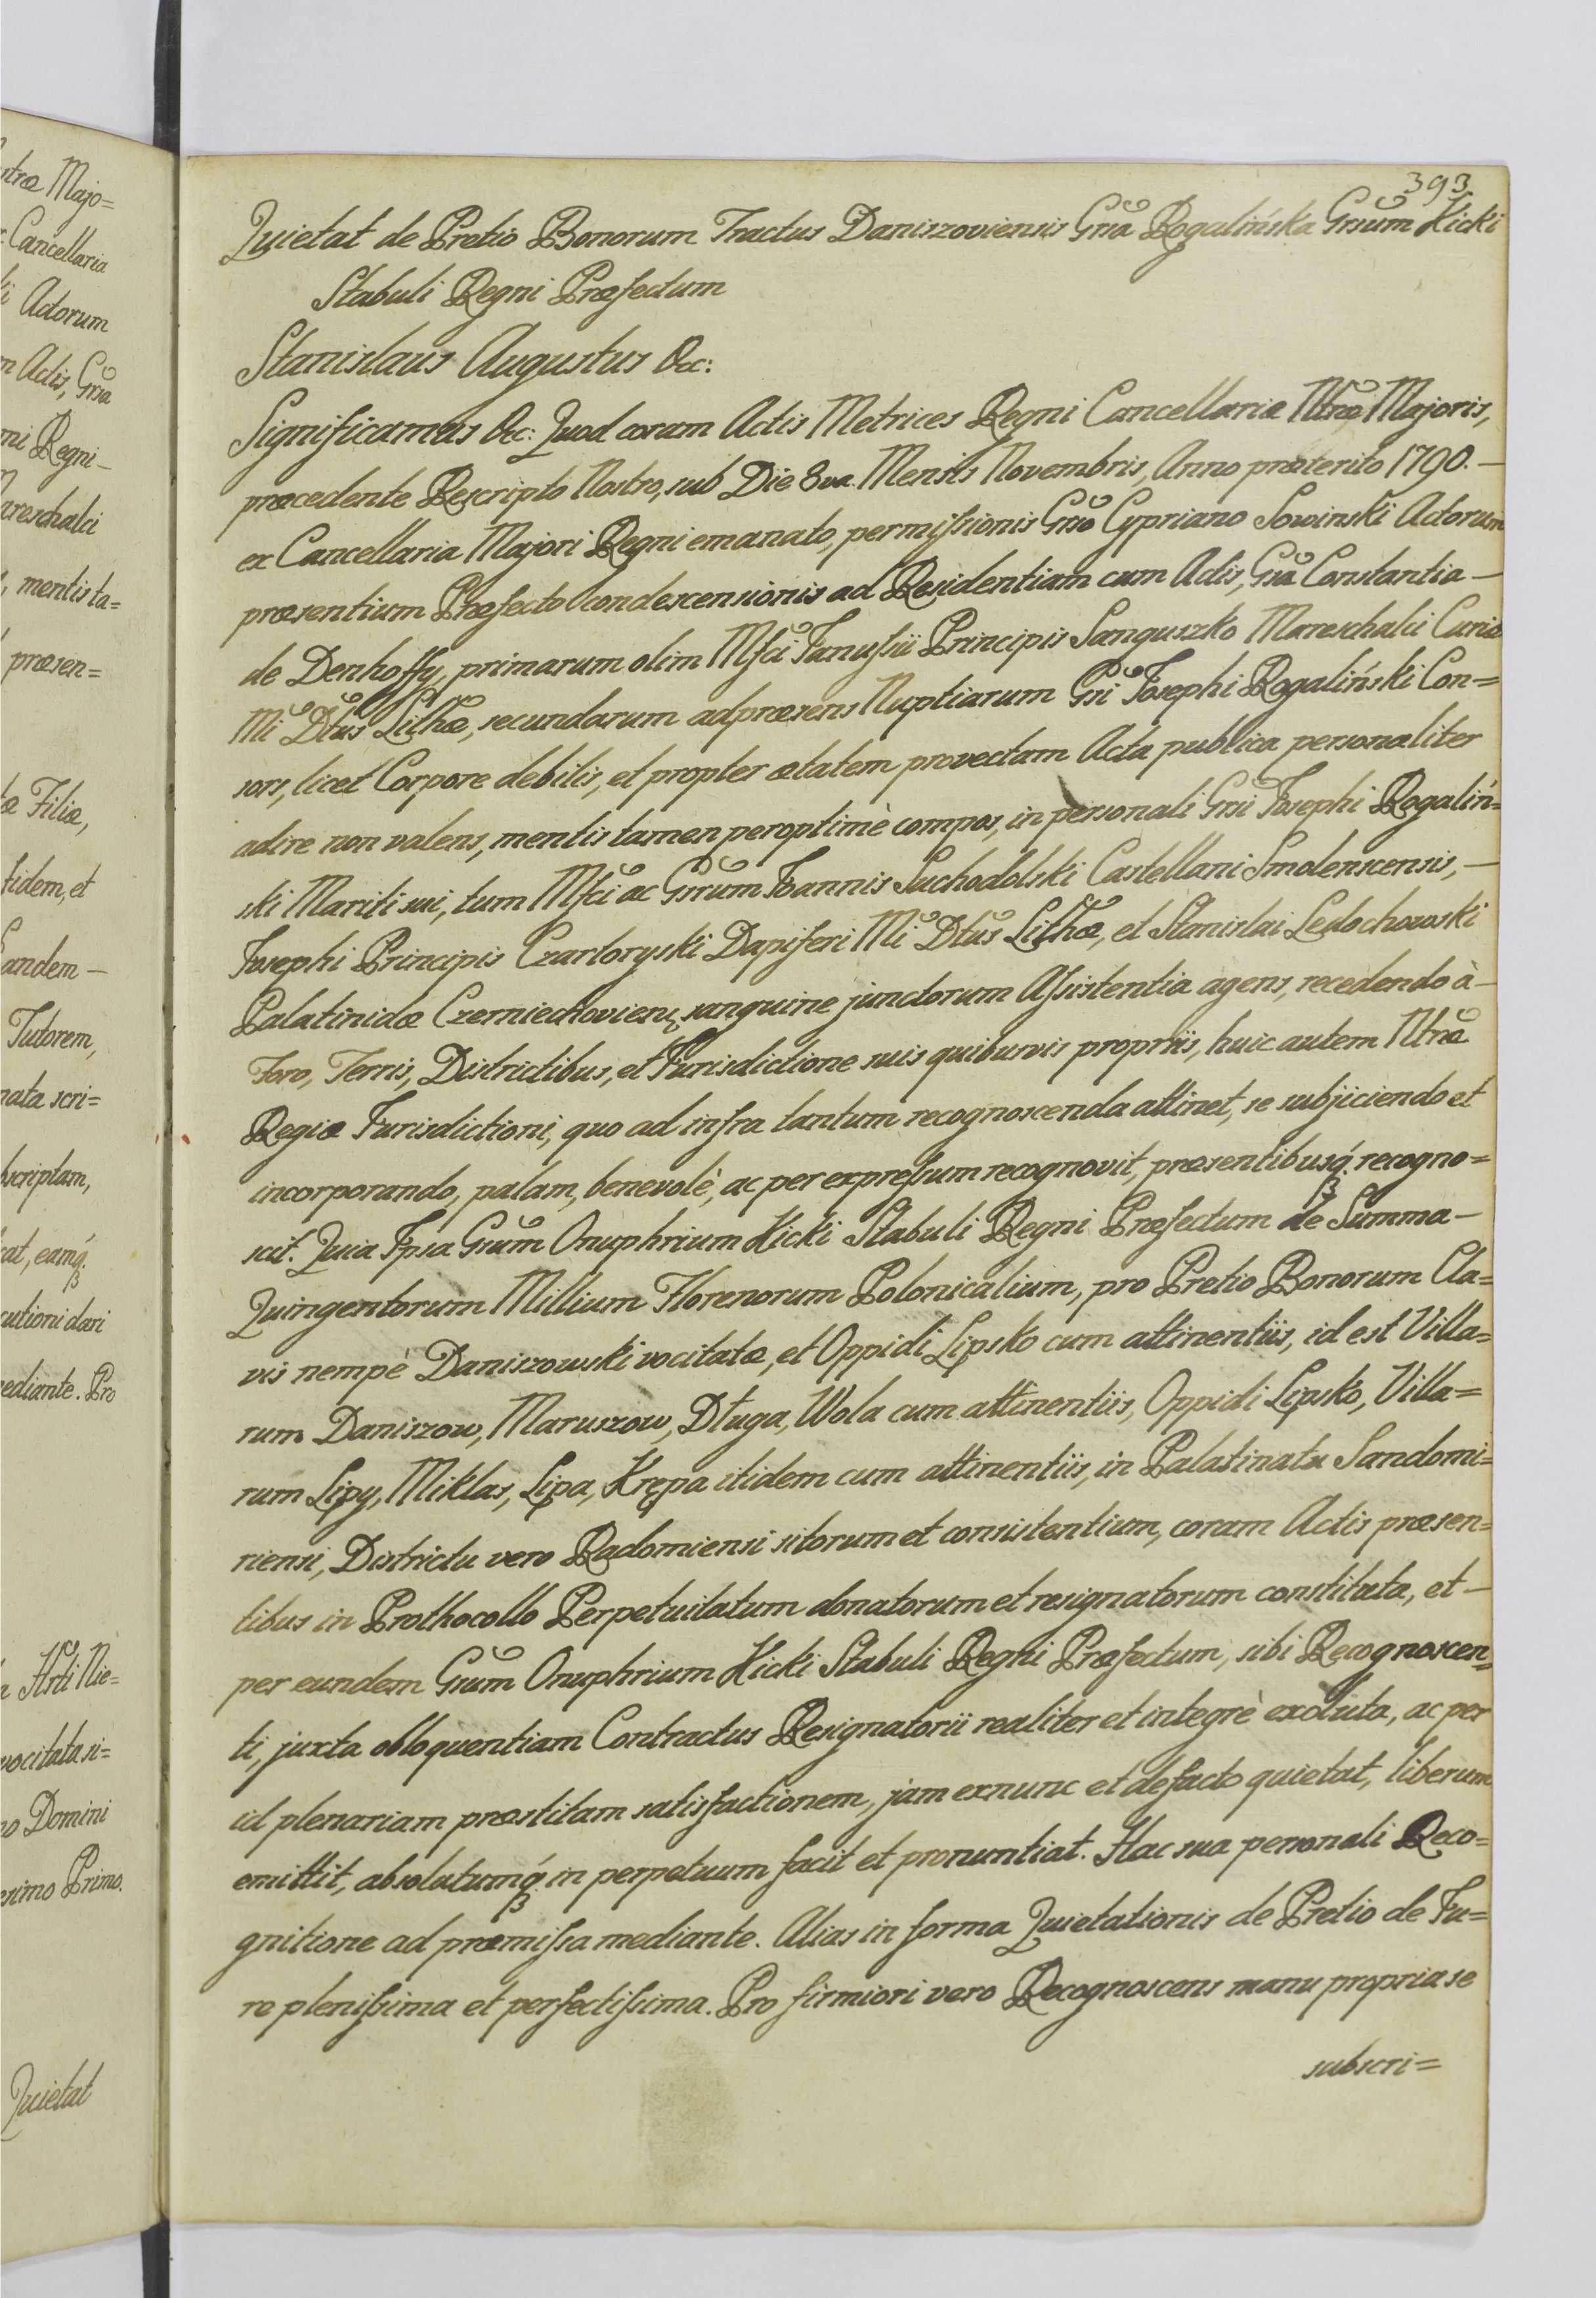 393
Quietat de Pretio Bonorum Tractus Daniszoviensis Gsa Rogalińska Grsum Kicki
Stabuli Regni Præfectum
Stanislaus Augustus &c:
Significamus &c: Quod coram Actis Metrices Regni Cancellariæ Ntræ Majoris,
præcedente Rescripto Nostro, sub Die 8va Mensis Novembris, Anno præterito 1790.—
ex Cancellaria Majori Regni emanato, permissionis Gso Cypriano Sowinski Actorum
præsentium Præfecto condescensionis ad Residentiam cum Actis, Gsa Constantia—
de Denhoffy, primarum olim Mfci Janussii Principis Sanguszko Mareschalci Curiæ
Mi Dtus Lithæ, secundarum adpræsens Nuptiarum Gsi Josephi Rogaliński Con=
sors, licet Corpore debilis, et propter ætatem provectam Acta publica personaliter
adire non valens, mentis tamen peroptimè compos, in personali Grsi Josephi Rogaliń=
ski Mariti sui, tum Mfci ac Grsrum Joannis Suchodolski Castellani Smolenscensis,—
Josephi Principis Czartoryski Dapiferi Mi Dtus Lithæ, et Stanislai Ledochowski
Palatinidæ Czerniechoviens, sanguine junctorum Assistentia agens, recedendo à—
Foro, Terris, Districtibus, et Jurisdictione suis quibusvis propriis, huic autem Ntræ
Regiæ Jurisdictioni, quo ad infra tantum recognoscenda attinet, se subjiciendo et
incorporando, palam, benevolè, ac per expressum recognovit, præsentibusq́ recogno=
scit. Quia Ipsa Gsum Onuphrium Kicki Stabuli Regni Præfectum de Summa—
Quingentorum Millium Florenorum Polonicalium, pro Pretio Bonorum Cla=
vis nempè Daniszowski vocitatæ, et Oppidi Lipsko cum attinentiis, id est Villa=
rum Daniszow, Maruszow, Długa, Wola cum attinentiis, Oppidi Lipsko, Villa=
rum Lipy, Miklas, Lipa, Krępa itidem cum attinentiis, in Palatinatu Sandomi=
riensi, Districtu vero Radomiensi sitorum et consistentium, coram Actis præsen=
tibus in Prothocollo Perpetuitatum donatorum et resignatorum constituta, et—
per eundem Gsum Onuphrium Kicki Stabuli Regni Præfectum, sibi Recognoscen=
ti, juxta obloquentiam Contractus Resignatorii realiter et integrè exoluta, ac per
id plenariam præstitam satisfactionem, jam exnunc et defacto quietat, liberum
emittit, absolutumq́ in perpetuum facit et pronuntiat. Hac sua personali Reco=
gnitione ad præmissa mediante. Alias in forma Quietationis de Pretio de Ju=
re plenissima et perfectissima. Pro firmiori vero Recognoscens manu propria se
subscri=